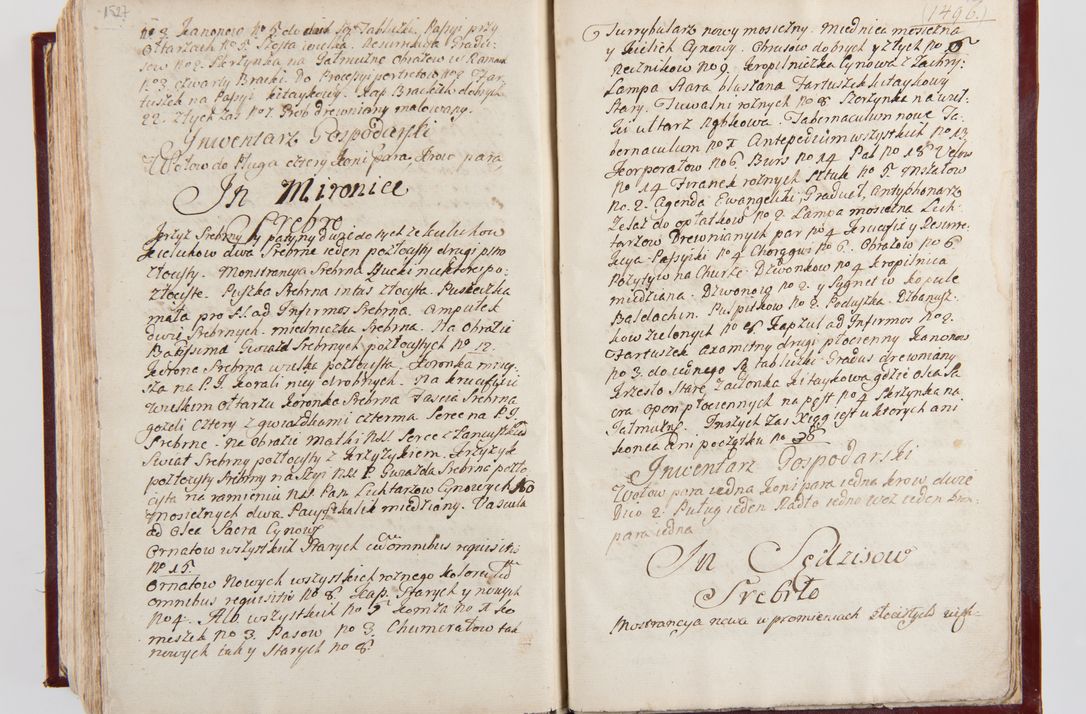 1527
No 3. Kanonow No 5. do Tabliczki, Passyi przy
Ołtarzach No 5. Szesta wielka. Resurrekcia Gradu-
sow No 2. Skrzynka na Jałmużnę Obrazow w Ramach
No 3. otwarty Bracki. Do Processyi portretow No 2. Far-
tuszek na Passyi kitaykowy. Kap Brackich dobrych
22. złych zaś No 7. Grob drewniany malowany.
Inwentarz Gospodarski
Wołow do Pługa cztery Koni para, Krow para
In Mironice
Srebro
Krzyż Srebrny y patyny dwie do tych ze kielichow
Kielichow dwa Srebrne ieden pozłocysty drugi
złocysty. Monstrancya Srebrna Sztucki niektore po-
złociste. Puszka Srebrna intus złocysta. Puszeczka
mała pro S. ad Infirmos Srebrna. Ampułek
dwie Srebrnych. miedniczka Srebrna. Na Obrazie
Bolessima Gwiazd Srebrnych pozłocystych No 12.
Korone Srebrna wielka pozłocysta. Koronka mniey-
sza na P. J. Korali nicy drobnych. Na krucifixie
wielkim ołtarzu Koronka Srebrna Fascia Srebrna
gozdzi cztery z gwiazdkami czterma Serce na P. J.
Srebrne. Na Obrazie Matki NSS. Serce z Łancuszkiem
Swiat Srebrny pozłocysty z Krzyżykiem. Krzyżyk
pozłocysty Srebrny na Szyi NSS P. Gwiazda Srebrna pozło
cysta na ramieniu NSS Pan. Lichtarzow Cynowych No
mosiełnych dwa. Pacyfikalik miedziany. Vascula
ad Olea Sacra Cynowe
Ornatow wszystkich Starych cum omnibus requisitis
No 15.
Ornatow Nowych wszystkich rożnego koloru cum
omnibus requisitis No 8. Kap. Starych y nowych
No 4. Alb. wszystkich No 5 Komża No 1. Ko
meszek No 3. Pasow No 3. Chumerałow tak
nowych iak y Starych No 8.
(1496)
Turrybularz nowy mosiężny. Miednica mosiełna
y Kielich Cynowy. Obrusow dobrych y złych No 6
Ręcznikow No 9. Kropilniczka Cynowa z Zachry:
Lampa Stara bluszana Fartuszek kitaykowy
Stary. Tuwalni rożnych No 8 Szerzynka na wiel-
ki ułtarz Rąbkowa. Tabernaculum nowe Ta-
bernaculum No 1 Antepedium wszystkich No 13.
Korporałow No 6 Burs No 14 Pal No 18 Velow
No 14 Firanek rożnych Sztuk No 5 Mszałow
No. 2. Agenda Ewangeliki, Graduał, Antyphonarz
Zelaz do opłatkow No 2. Lampa mosiełna Lich
tarzow Drewnianych par No 4 Krucifix y Resurre-
kcya Passyiki No 4 Chorągwi No 6. Obrazow No 6
Pozytyw na Churze. Dzwonkow No 4 Kropilnica
miedziana. Dzwonow No 2. y Sygnet w kopule
Baldachin. Pulpitkow No 2. Poduszka. Dzbanusz-
kow zielonych No 8 Kapzuł ad Infirmos No 2.
Fartuszek Axamitny drugi płocienny Kanonow
No 3. do iednego SS. tabliczki Gradus drewniany
Krzesło Stare Zasłonka Kitaykowa gdzie Olea Sa
cra Opon płociennych na post No 4 Skrzynka na
Jałmużnę. Inszych zas Xiąg iest u ktorych ani
konca ani początku No 36
Inwentarz Gospodarski
Wołow para iedna Koni para iedna krow dwie
Dno 2. Pulug ieden Radło iedno woz ieden Bron-
para iedna
In Sędzisow
Srebrło
Mostrancya nowa w promieniach złocistych